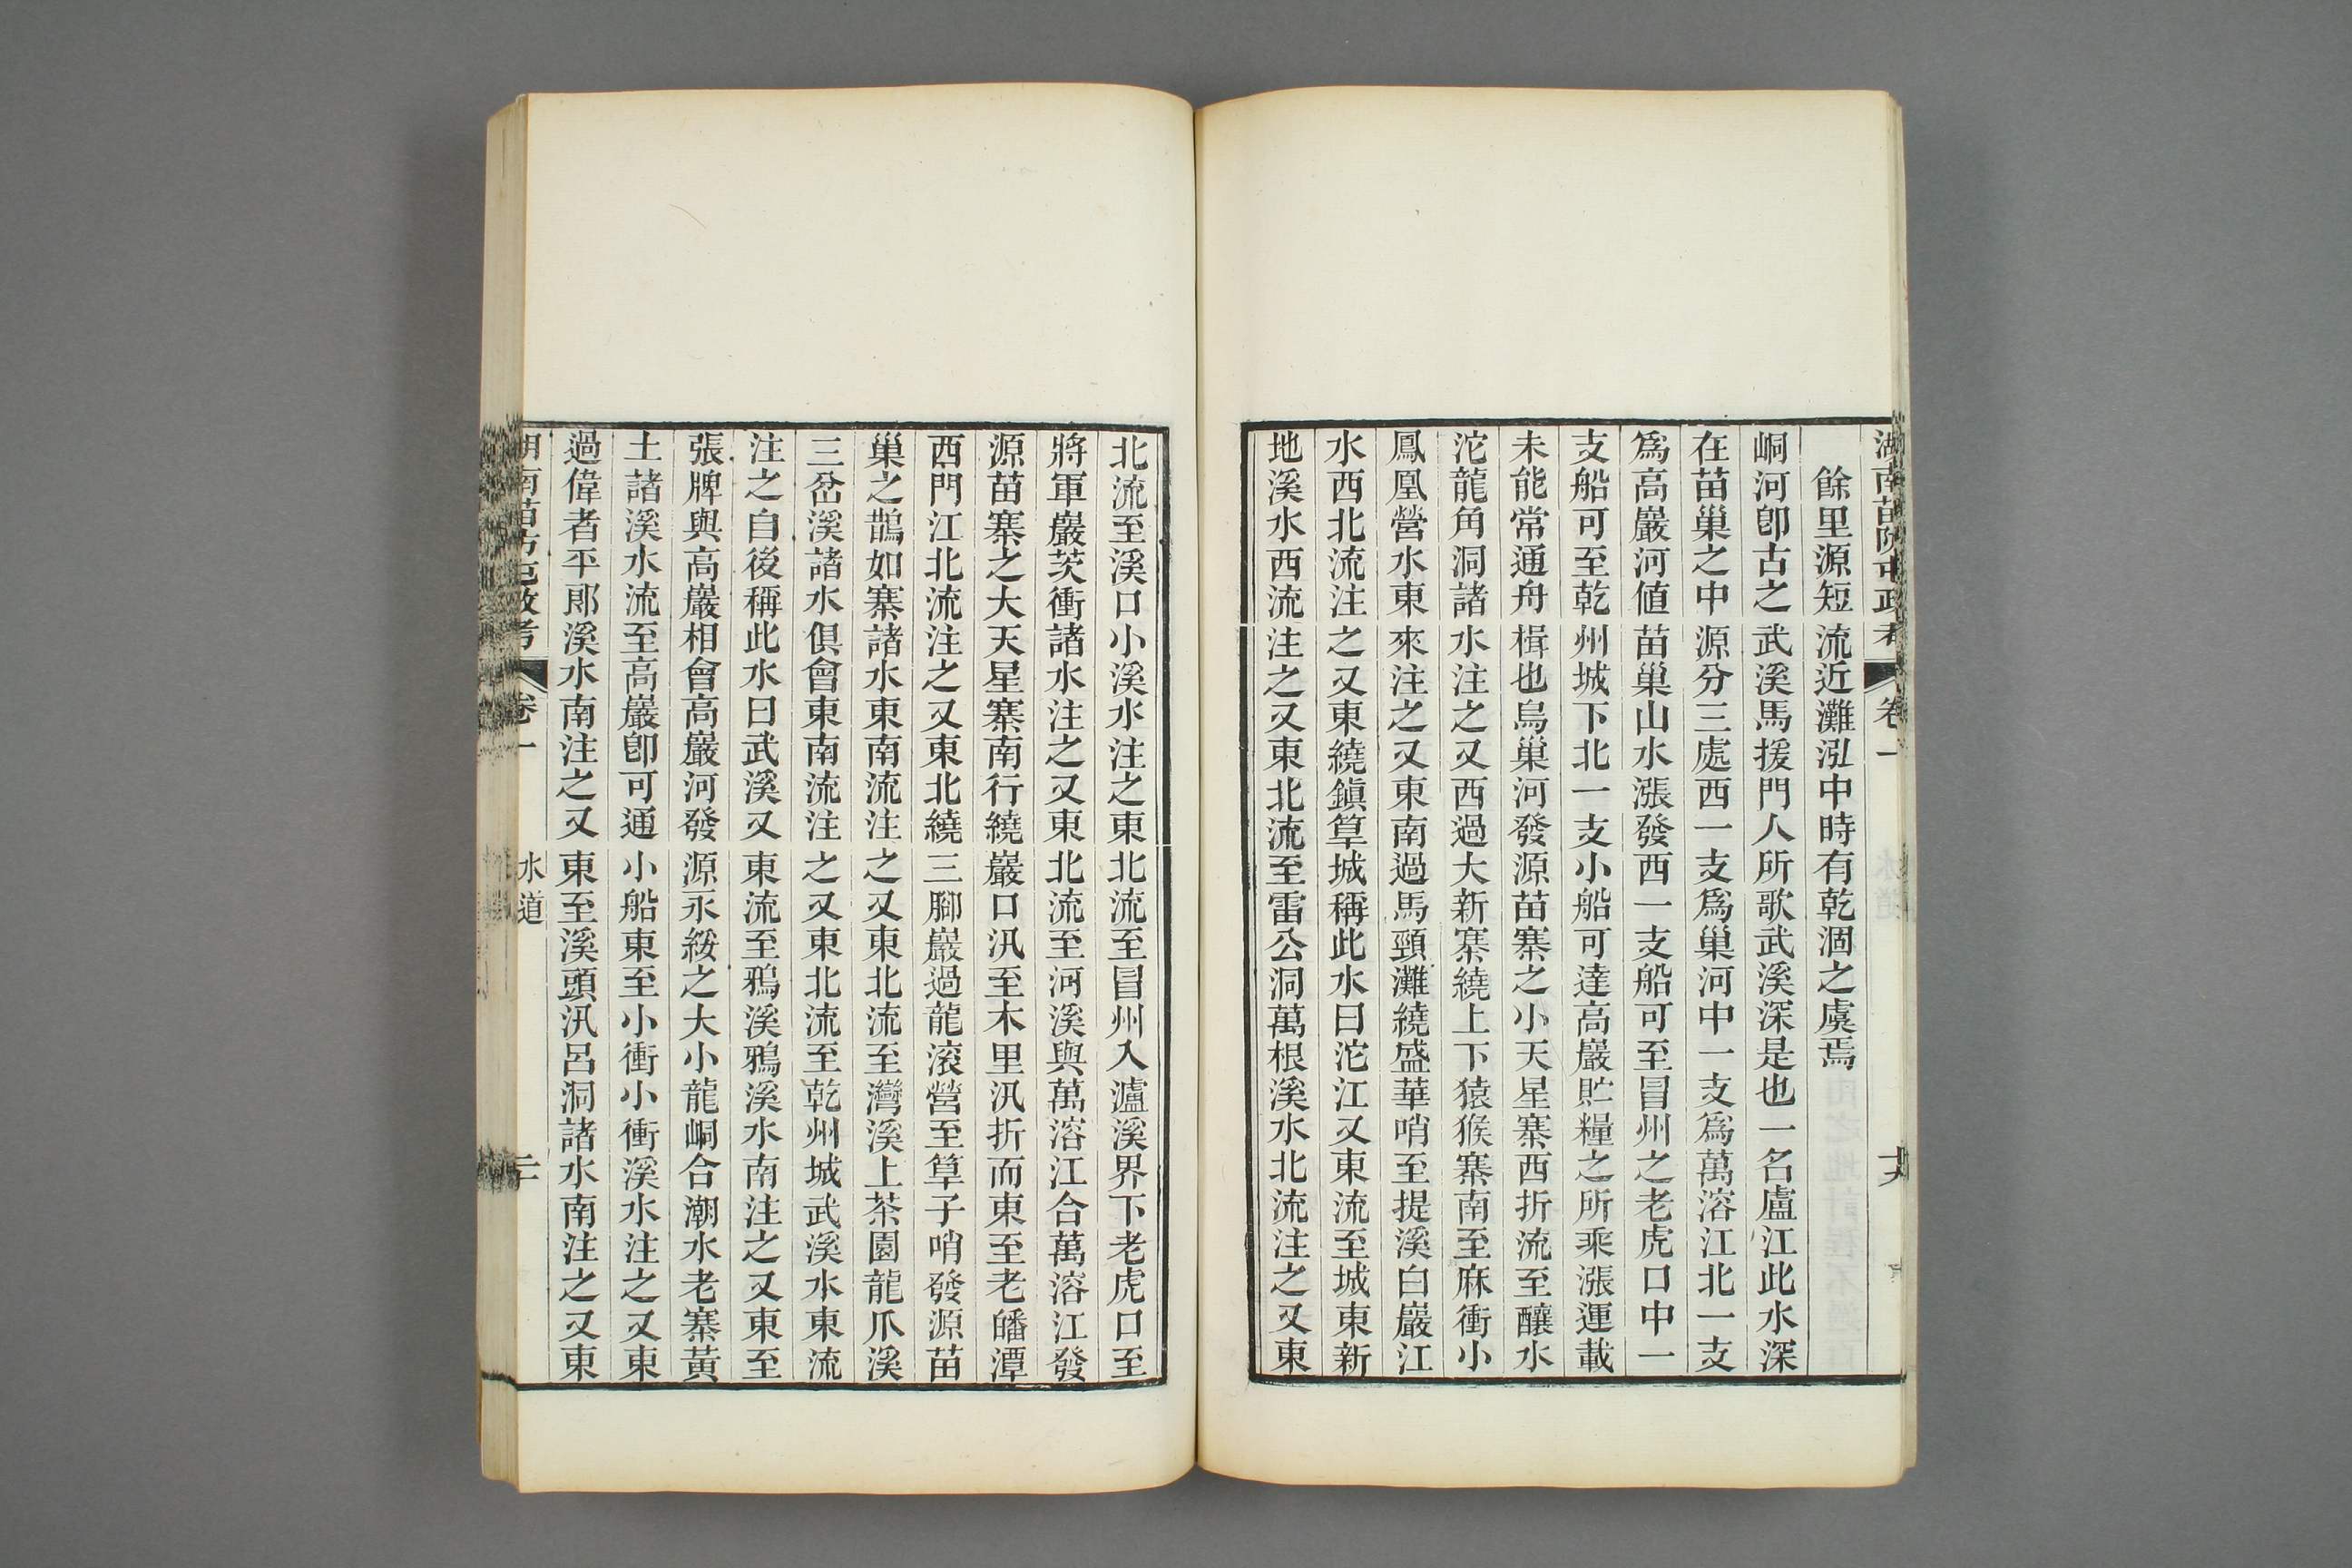 湖南苗防屯政考 卷一 十九
餘里源短流近灘泓中時有乾涸之虞焉
峒河卽古之武溪馬援門人所歌武溪深是也一名盧江此水深
在苗巢之中源分三處西一支爲巢河中一支爲萬溶江北一支
爲高巖河値苗巢山水漲發西一支船可至冒州之老虎口中一
支船可至乾州城下北一支小船可達高巖貯糧之所乘漲運載
未能常通舟楫也烏巢河發源苗寨之小天星寨西折流至釀水
沱龍角洞諸水注之又西過大新寨繞上下猿猴寨南至麻衝小
鳳凰營水東來注之又東南過馬頸灘繞盛華哨至提溪白巖江
水西北流注之又東繞鎭筸城稱此水曰沱江又東流至城東新
地溪水西流注之又東北流至雷公洞萬根溪水北流注之又東
北流至溪口小溪水注之東北流至冒州入瀘溪界下老虎口至
將軍巖茨衝諸水注之又東北流至河溪與萬溶江合萬溶江發
源苗寨之大天星寨南行繞巖口汛至木里汛折而東至老皤潭
西門江北流注之又東北繞三腳巖過龍滚營至筸子哨發源苗
巢之鵲如寨諸水東南流注之又東北流至灣溪上茶園龍爪溪
三岔溪諸水俱會東南流注之又東北流至乾州城武溪水東流
注之自後稱此水曰武溪又東流至鴉溪鴉溪水南注之又東至
張牌與高巖相會高巖河發源永綏之大小龍峒合潮水老寨黃
土諸溪水流至高巖卽可通小船東至小衝小衝溪水注之又東
過偉者平郞溪水南注之又東至溪頭汛呂洞諸水南注之又東
湖南苗防屯政考 卷一 水道 二十